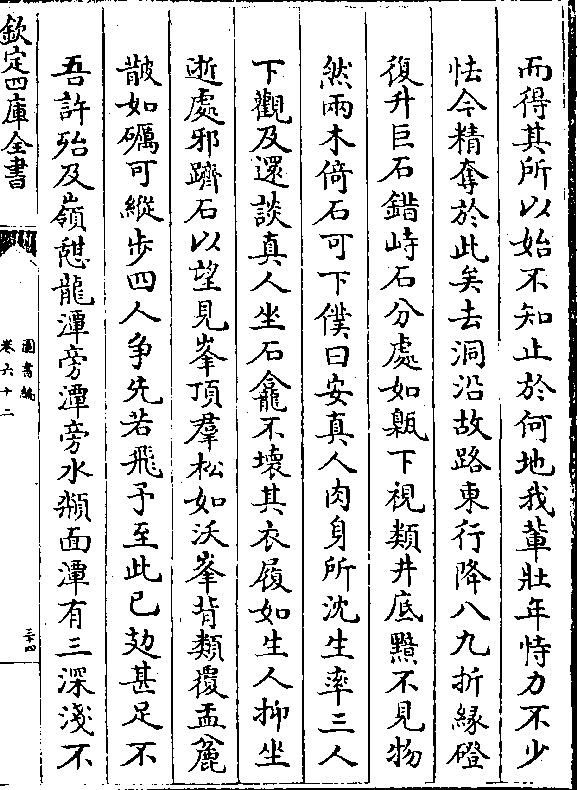 而得其所以始不知止於何地我輩壯年恃力不少
怯今精奪於此矣去洞沿故路東行降八九折緣磴
復升巨石錯峙石分處如甑下視類井底黯不見物
然兩木倚石可下僕曰安真人肉身所沈生率三人
下觀及還談真人坐石龕不壞其衣履如生人抑坐
逝處邪躋石以望見峯頂羣松如沃峯背類覆盂麄
皵如礪可縱步四人争先若飛予至此已劾甚足不
吾許殆及嶺憇龍潭旁潭旁水瀕面潭有三深淺不
欽定四庫全書
圖書編
卷六十二
三十四